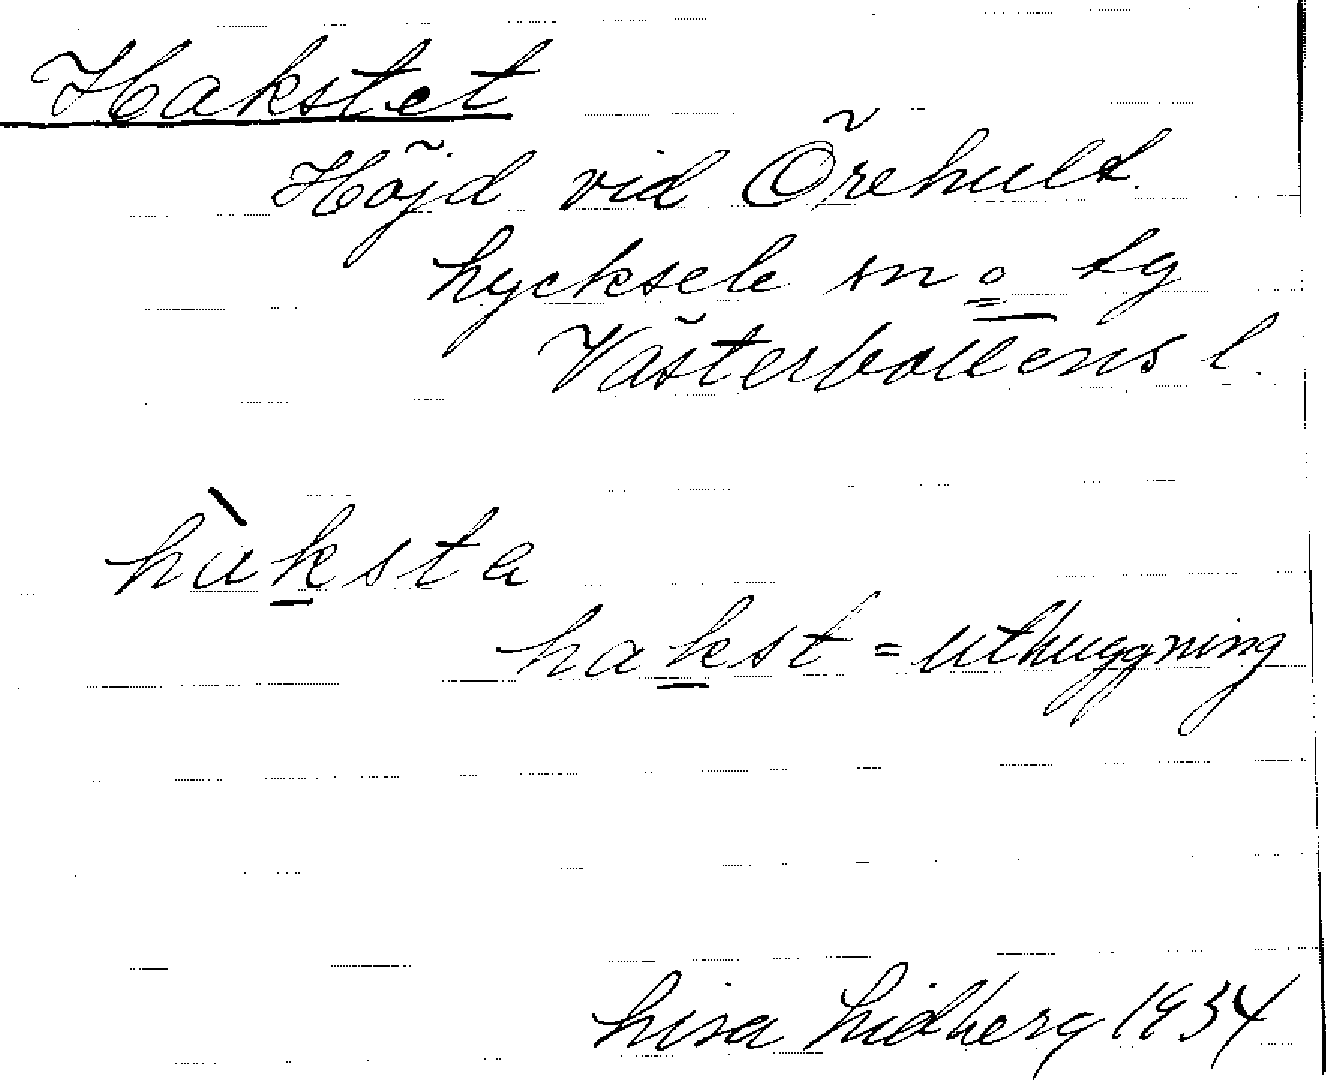 Hakstet
Höjd vid Örehult
Lycksele sn o tg
Västerbottens l.
hàksta
hakst = uthuggning
Lisa Lidberg 1934